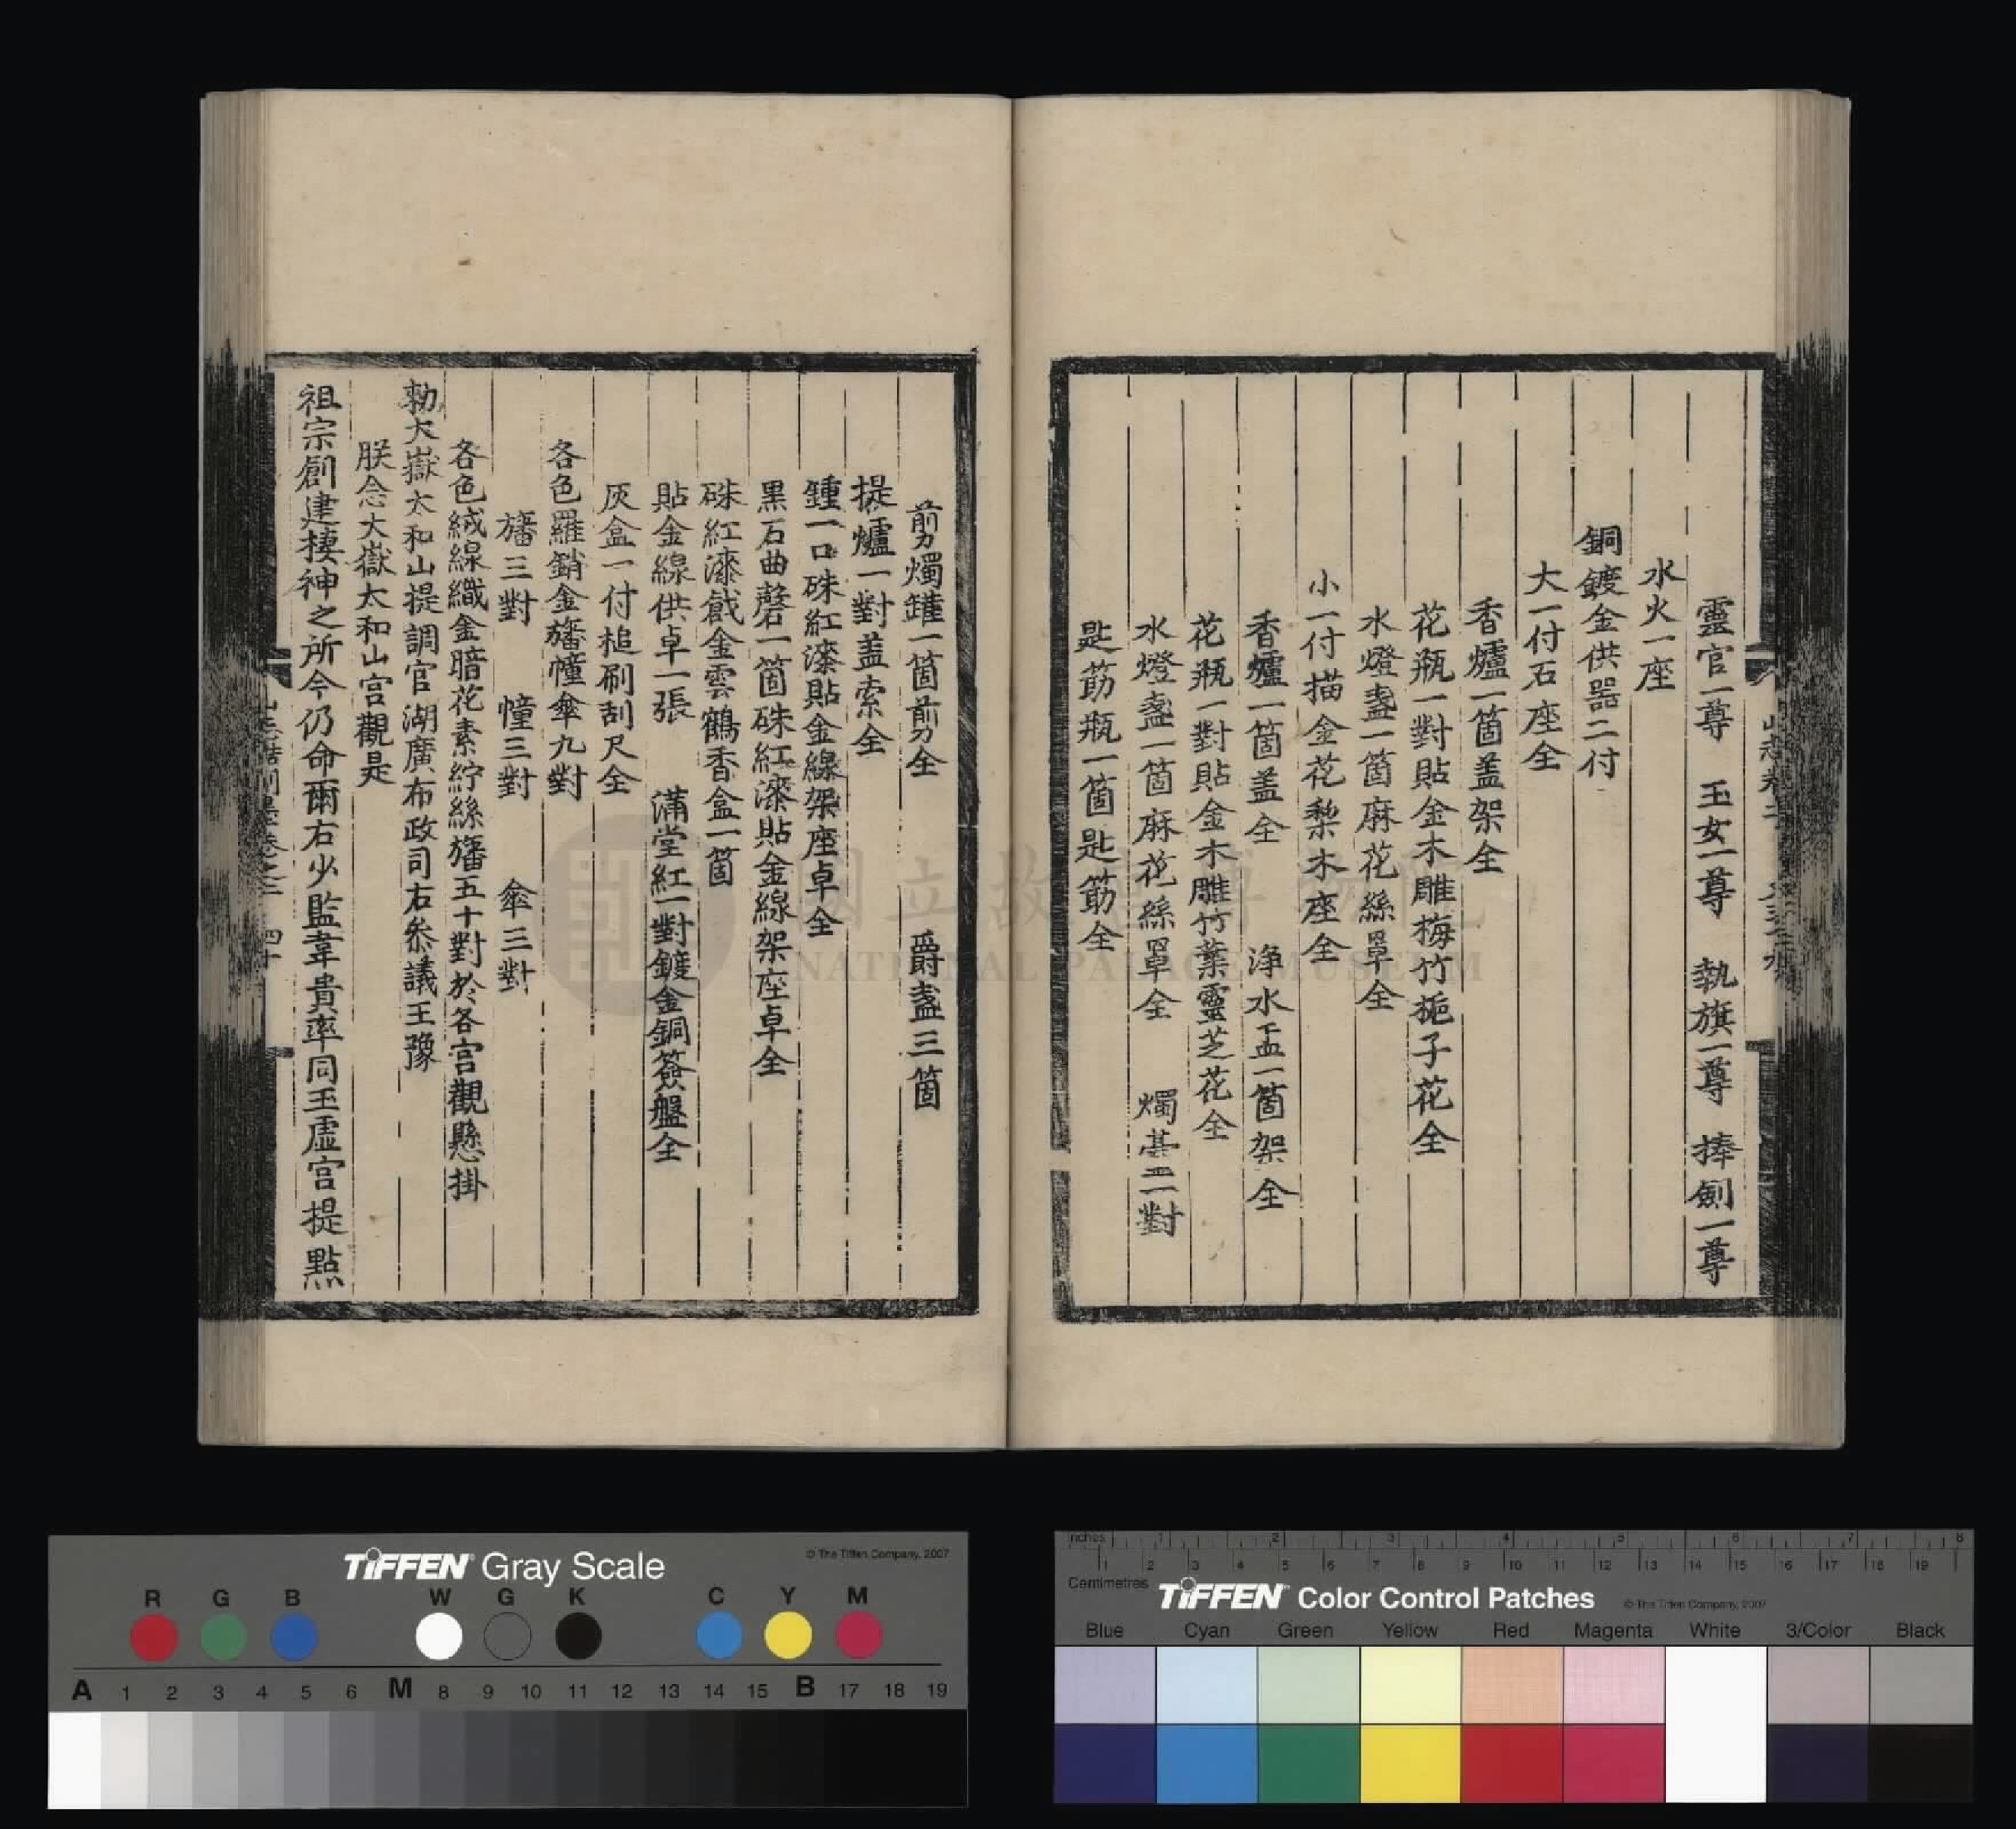 靈官一尊　玉女一尊　執旗一尊　捧劍一尊
水火一座
銅鍍金供器二付
大一付石座全
香爐一箇盖架全
花瓶一對貼金木雕梅竹梔子花全
水燈盞一箇麻花絲罩全
小一付描金花梨木座全
香爐一箇盖全　淨水盂一箇架全
花瓶一對貼金木雕竹葉靈芝花全
水燈盞一箇麻花絲罩全　燭臺二對
匙筯瓶一箇匙筯全
剪燭罐一箇剪全　爵盞三箇
提爐一對盖索全
鍾一口硃紅漆貼金線架座卓全
黑石曲磬一箇硃紅漆貼金線架座卓全
硃紅漆戧金雲鶴香盒一箇
貼金線供卓一張　滿堂紅一對鍍金銅簽盤全
灰盒一付槌刷刮尺全
各色羅銷金旛幢傘九對
旛三對　幢三對　傘三對
各色絨線織金暗花素紵絲旛五十對於各宮觀懸掛
勑大嶽太和山提調官湖廣布政司右叅議王豫
朕念大嶽太和山宮觀是
祖宗創建棲神之所今仍命爾右少監韋貴率同玉虛宮提點
四十
國立故宮博物院
NATIONAL PALACE MUSEUM
TIFFEN Gray Scale
© The Tiffen Company, 2007
R G B W G K C Y M
A 1 2 3 4 5 6 M 8 9 10 11 12 13 14 15 B 17 18 19
inches 1 2 3 4 5 6 7 8
1 2 3 4 5 6 7 8 9 10 11 12 13 14 15 16 17 18 19
Centimetres
TIFFEN Color Control Patches
© The Tiffen Company, 2007
Blue Cyan Green Yellow Red Magenta White 3/Color Black